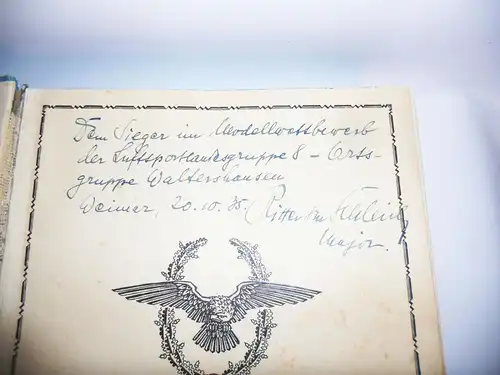 Dem Sieger im Modellwettbewerb
der Luftsportlandesgruppe 8 – Orts-
gruppe Waltershausen
Weimar, 20.10.35. Ritter von
Major.